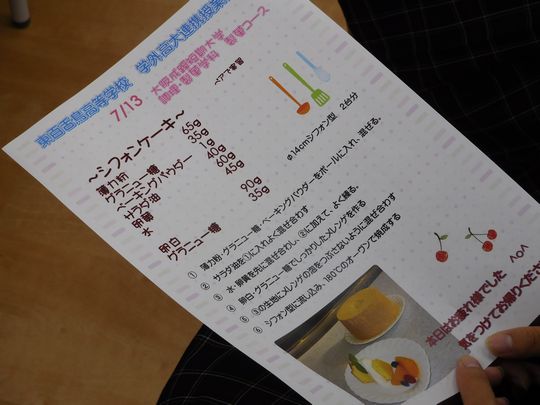 東百舌鳥高等学校 学外高大連携授業
7/13 大阪成蹊短期大学
調理・製菓学科 製菓コース
ペアで実習
~シフォンケーキ~
φ14cmシフォン型 2台分
薄力粉 65g
グラニュー糖 35g
ベーキングパウダー 1g
サラダ油 40g
卵黄 60g
水 45g
卵白 90g
グラニュー糖 35g
① 薄力粉・グラニュー糖・ベーキングパウダーをボールに入れ、混ぜる。
② サラダ油を①に入れよく混ぜ合わす
③ 水・卵黄を先に混ぜ合わし、②に加えて、よく練る。
④ 卵白・グラニュー糖でしっかりしたメレンゲを作る
⑤ ③の生地にメレンゲの泡をつぶさないように混ぜ合わす
⑥ シフォン型に流し込み、180℃のオーブンで焼成する
本日はお疲れ様でした ^o^
気をつけてお帰りくださ